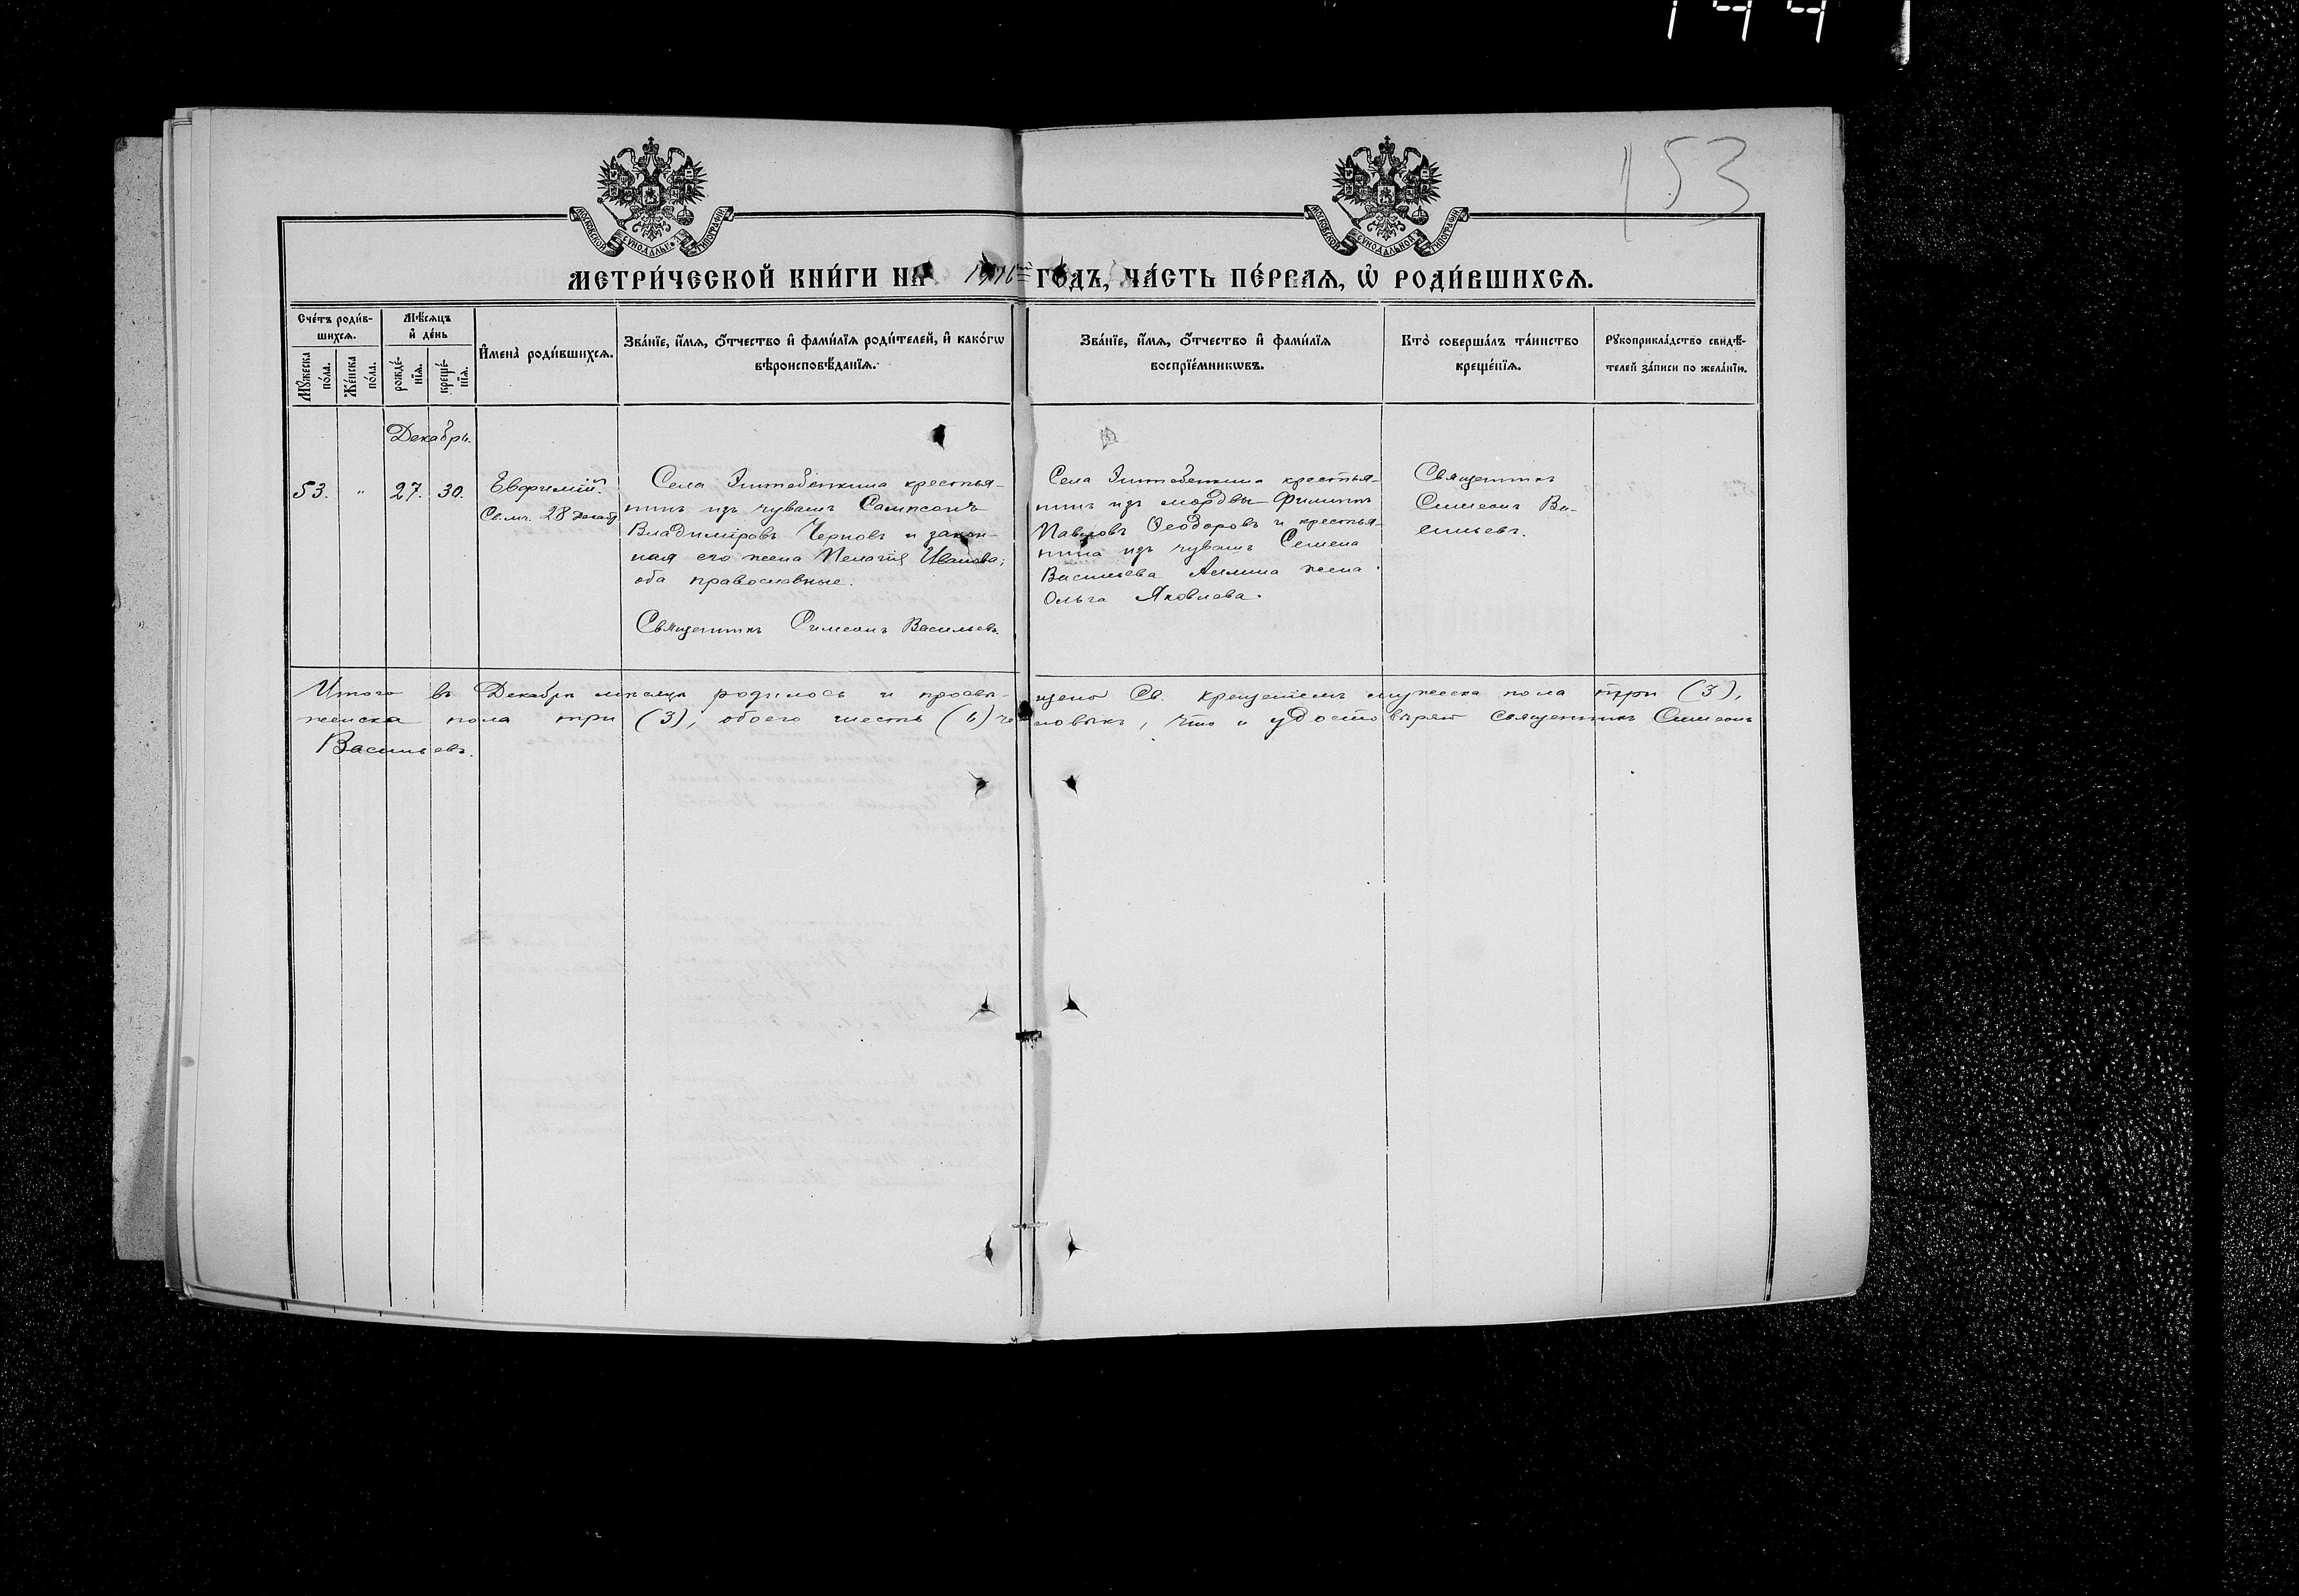 1441
153
МОСКОВСКОЙ СѴНОДАЛЬНОЙ ТИПОГРАФІИ
МОСКОВСКОЙ СѴНОДАЛЬНОЙ ТИПОГРАФІИ
МЕТРИ́ЧЕСКОЙ КНИ́ГИ НА 1916й ГО́ДЪ, ЧА́СТЬ ПЕ́РВАѦ, Ѽ РОДИ́ВШИХСѦ.
Сче́тъ роди́в-
шихсѧ.
Мꙋ́жеска по́ла.
Же́нска по́ла.
Мѣ́сѧцъ
и҆ де́нь
рожде́-
нїѧ.
креще́-
нїѧ.
И҆мена̀ роди́вшихсѧ.
Зва́нїе, и҆́мѧ, ѻ҆́тчество и҆ фами́лїѧ роди́телей, и҆ како́гѡ
вѣроисповѣ́данїѧ.
Зва́нїе, и҆́мѧ, ѻ҆́тчество и҆ фами́лїѧ
воспрїе́мникѡвъ.
Кто̀ соверша́лъ та́инство
креще́нїѧ.
Рꙋкоприкла́дство свидѣ́-
телей за́писи по жела́нїю.
Декабрь.
53. " 27. 30. Евфимій.
Св. мч. 28 Декабр
Села крестья-
нинъ изъ чувашъ Сампсонъ
Владиміровъ Черновъ и закон-
ная его жена Пелагія Иванова;
оба православные.
Священникъ Симеонъ Васильевъ.
Села крестья-
нинъ изъ мордвы Филиппъ
Павловъ Ѳеодоровъ и крестья-
нина изъ чувашъ Семена
Васильева жена
Ольга Яковлева.
Священникъ
Симеонъ Ва-
сильевъ.
Итого въ Декабрѣ мѣсяцѣ родилось и просвѣ-щено Св. крещеніемъ мужеска пола три (3),
женска пола три (3), обоего шесть (6) человѣкъ, что и удостовѣряетъ священникъ Симеонъ
Васильевъ.